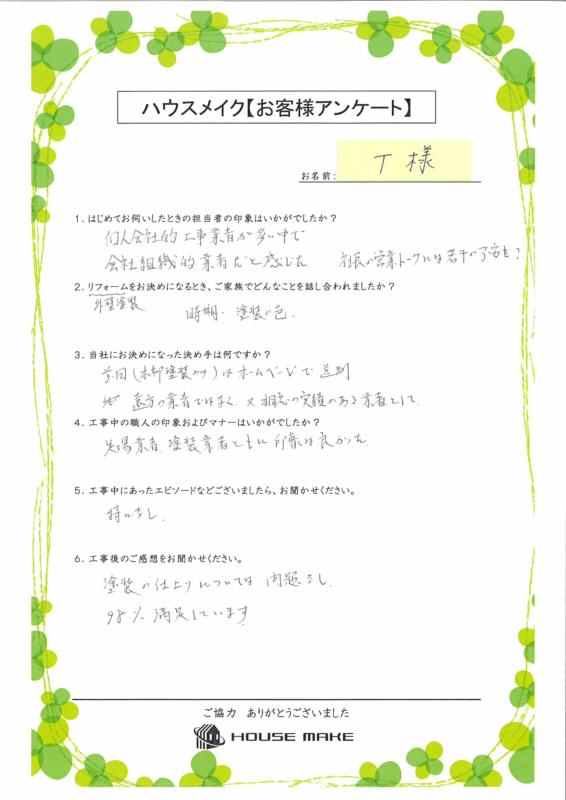 ハウスメイク【お客様アンケート】
お名前: T 様
1．はじめてお伺いしたときの担当者の印象はいかがでしたか？
個人会社的工事業者が多い中で
会社組織的業者だと感じた 社長の営業トークには若干の不安も？
2．リフォームをお決めになるとき、ご家族でどんなことを話し合われましたか？
外壁塗装 時期・塗装の色
3．当社にお決めになった決め手は何ですか？
今回（木部塗装のみ）はホームページで 選別
遠方の業者ではなく、又相応の実績のある業者として
4．工事中の職人の印象およびマナーはいかがでしたか？
足場業者、塗装業者ともに印象は良かった
5．工事中にあったエピソードなどございましたら、お聞かせください。
特になし.
6．工事後のご感想をお聞かせください。
塗装の仕上りについては 問題なし.
98％満足しています
ご協力 ありがとうございました
HOUSE MAKE